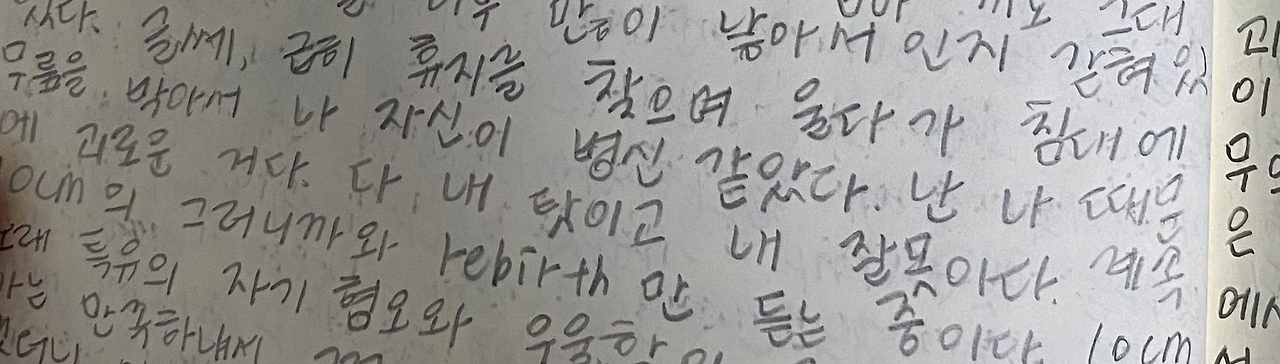 그대
인지 갇혀있
다. 글쎄, 급히 휴지를 찾으며 울다가 침대에
무릎을 박아서 나 자신이 병신 같았다. 난 나 때문
에 괴로운 거다. 다 내 탓이고 내 잘못이다. 계속
10cm의 그러니까와 rebirth만 듣는 중이다. 10cm
노래 특유의 자기 혐오와 우울한
이
은
에서